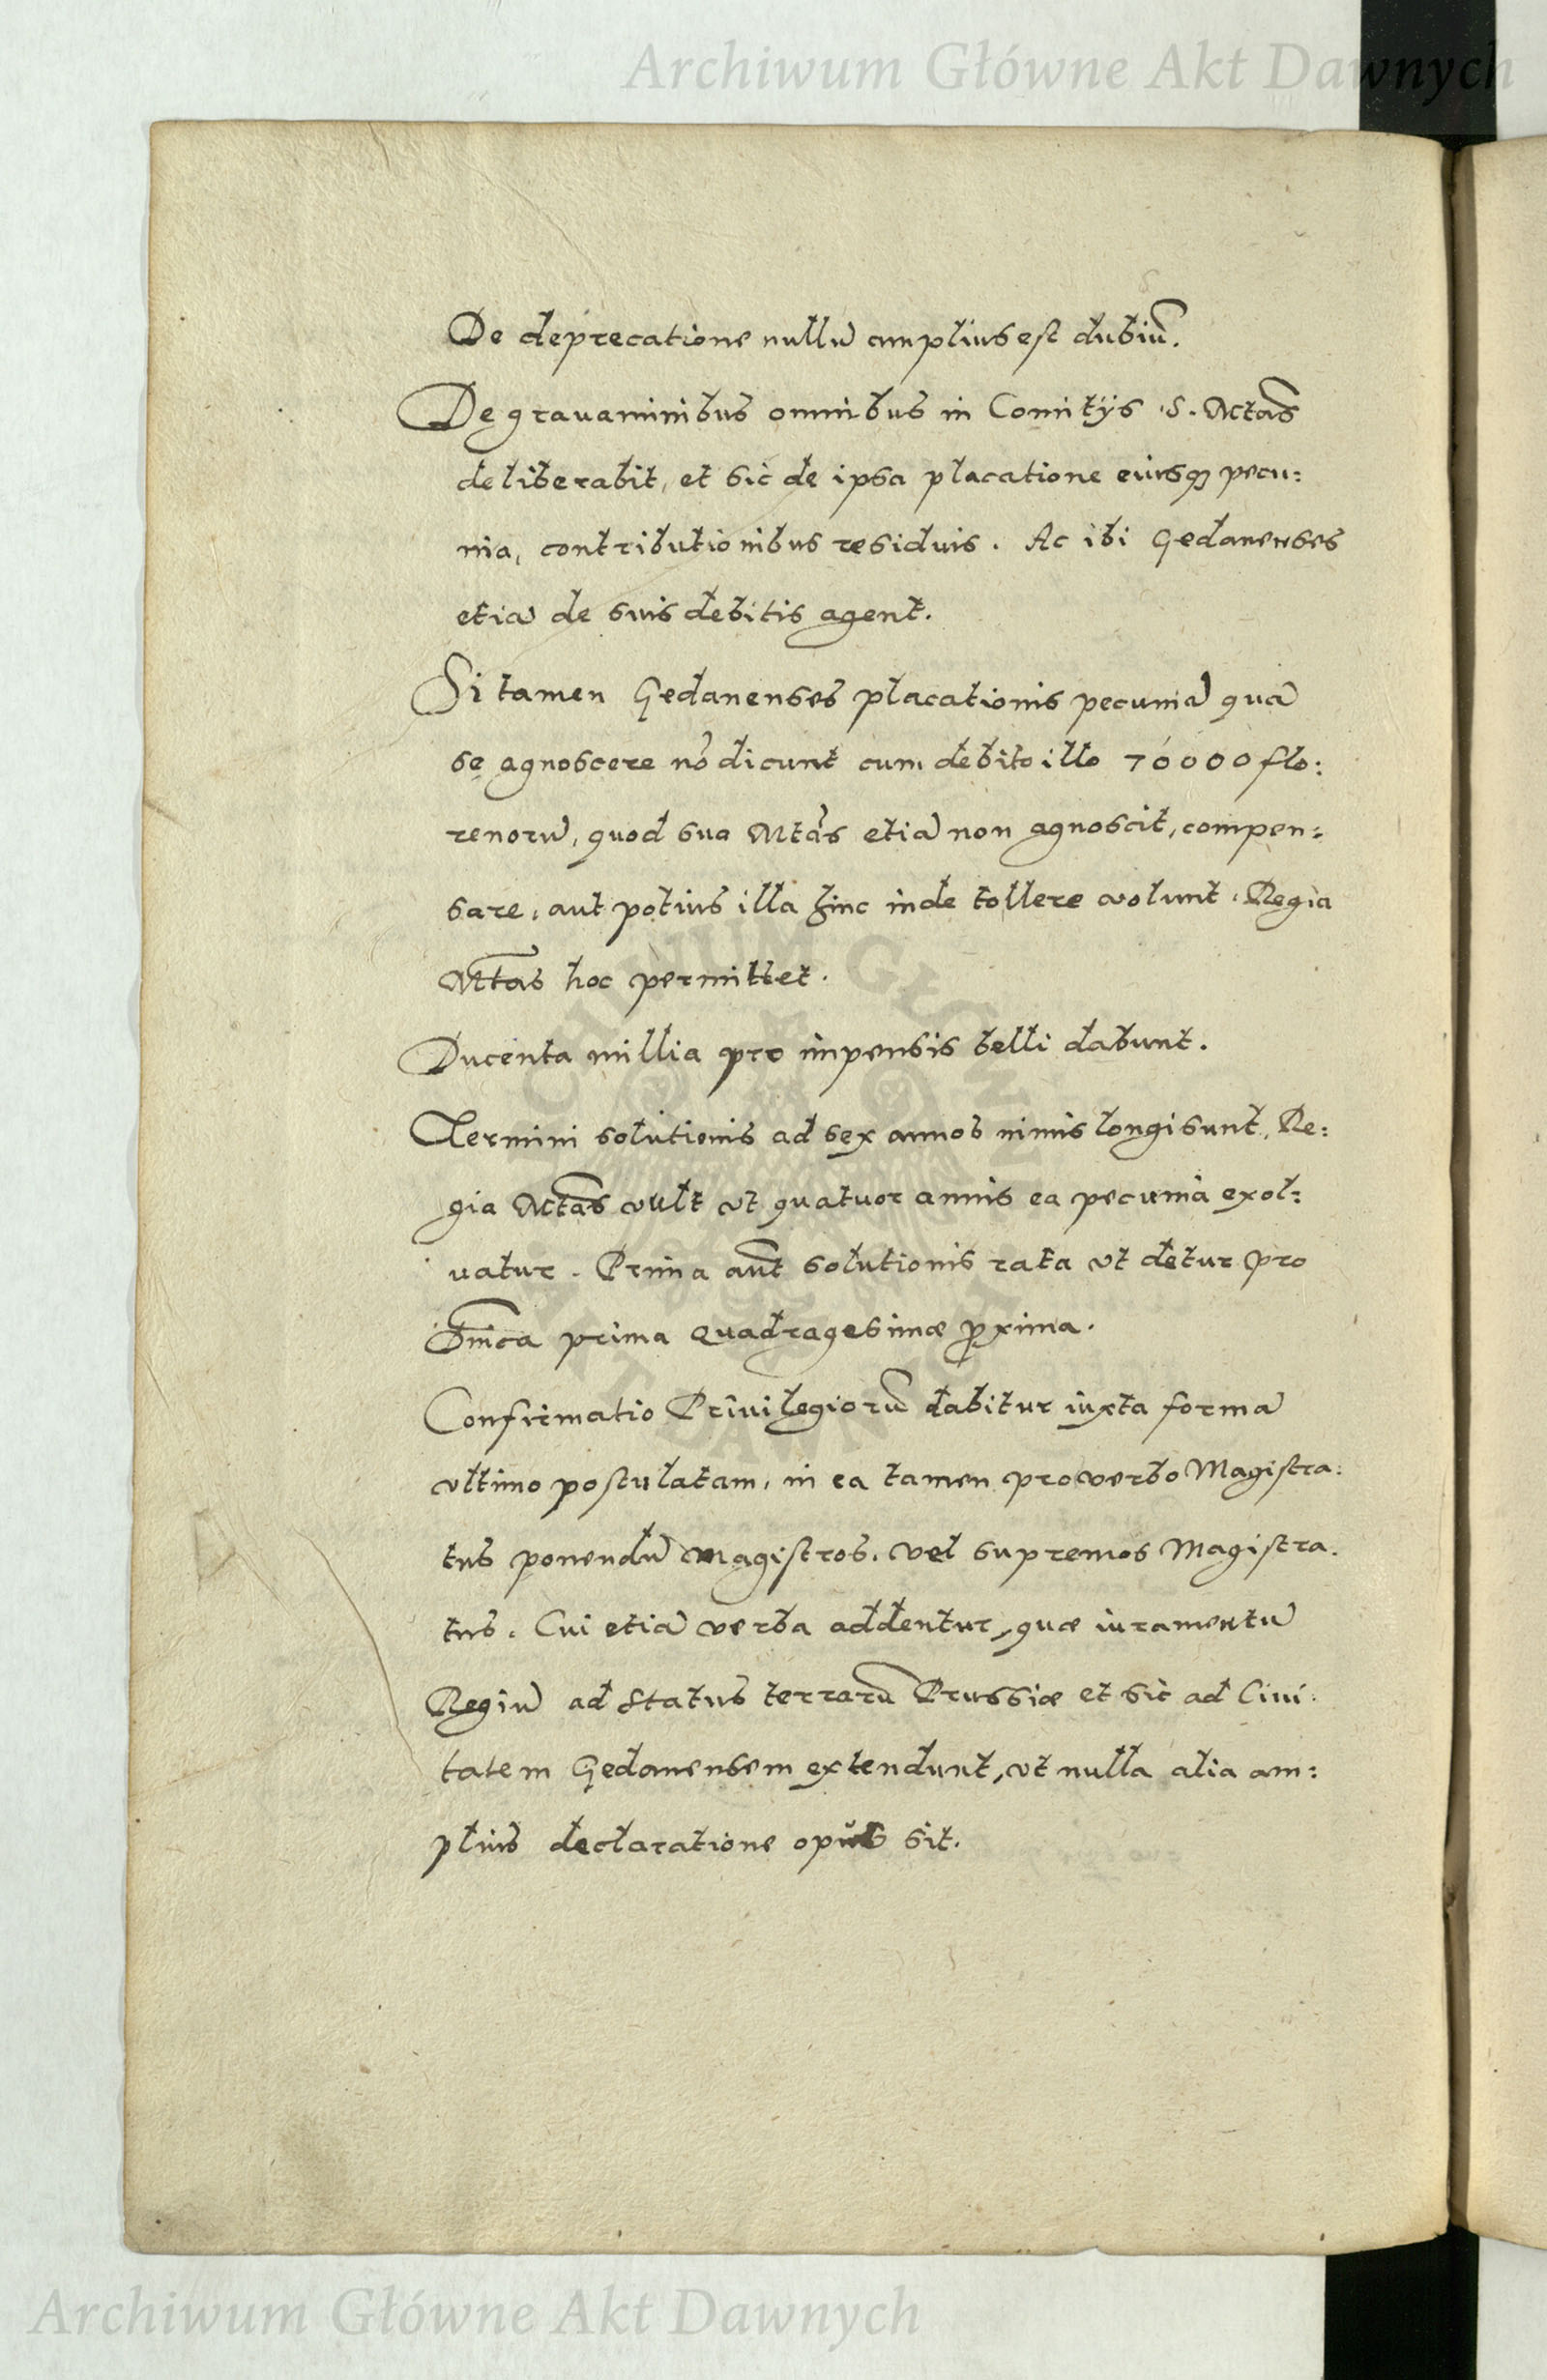 Archiwum Główne Akt Dawnych
De deprecatione nullũ amplius est dubiũ.
De grauaminibus omnibus in Comitijs S. Mtas
deliberabit, et sic de ipsa placatione eiusq́ pecu:
nia, contributionibus residuis. Ac ibi Gedanenses
etiã de suis debitis agent.
Si tamen Gedanenses placationis pecuniã quã
se agnoscere nõ dicunt cum debito illo 70000 flo:
renorũ, quod sua Mtas etiã non agnoscit, compen:
sare, aut potius illa hinc inde tollere volunt, Regia
Mtas hoc permittet.
Ducenta millia pro impensis belli dabunt.
Termini solutionis ad sex annos nimis longi sunt, Re:
gia Mtas vult vt quatuor annis ea pecunia exol:
uatur. Prima aũt solutionis rata vt detur pro
Dñica prima Quadragesimæ ꝓxima.
Confirmatio Priuilegiorũ dabitur iuxta formã
vltimo postulatam, in ea tamen pro verbo Magistra:
tus ponendũ Magistros, vel supremos Magistra.
tus. Cui etiã verba addentur, quæ iuramentũ
Regiũ ad Status terrarũ Prussiæ et sic ad Ciui:
tatem Gedanensem extendunt, vt nulla alia am:
plius declaratione opus sit.
Archiwum Główne Akt Dawnych